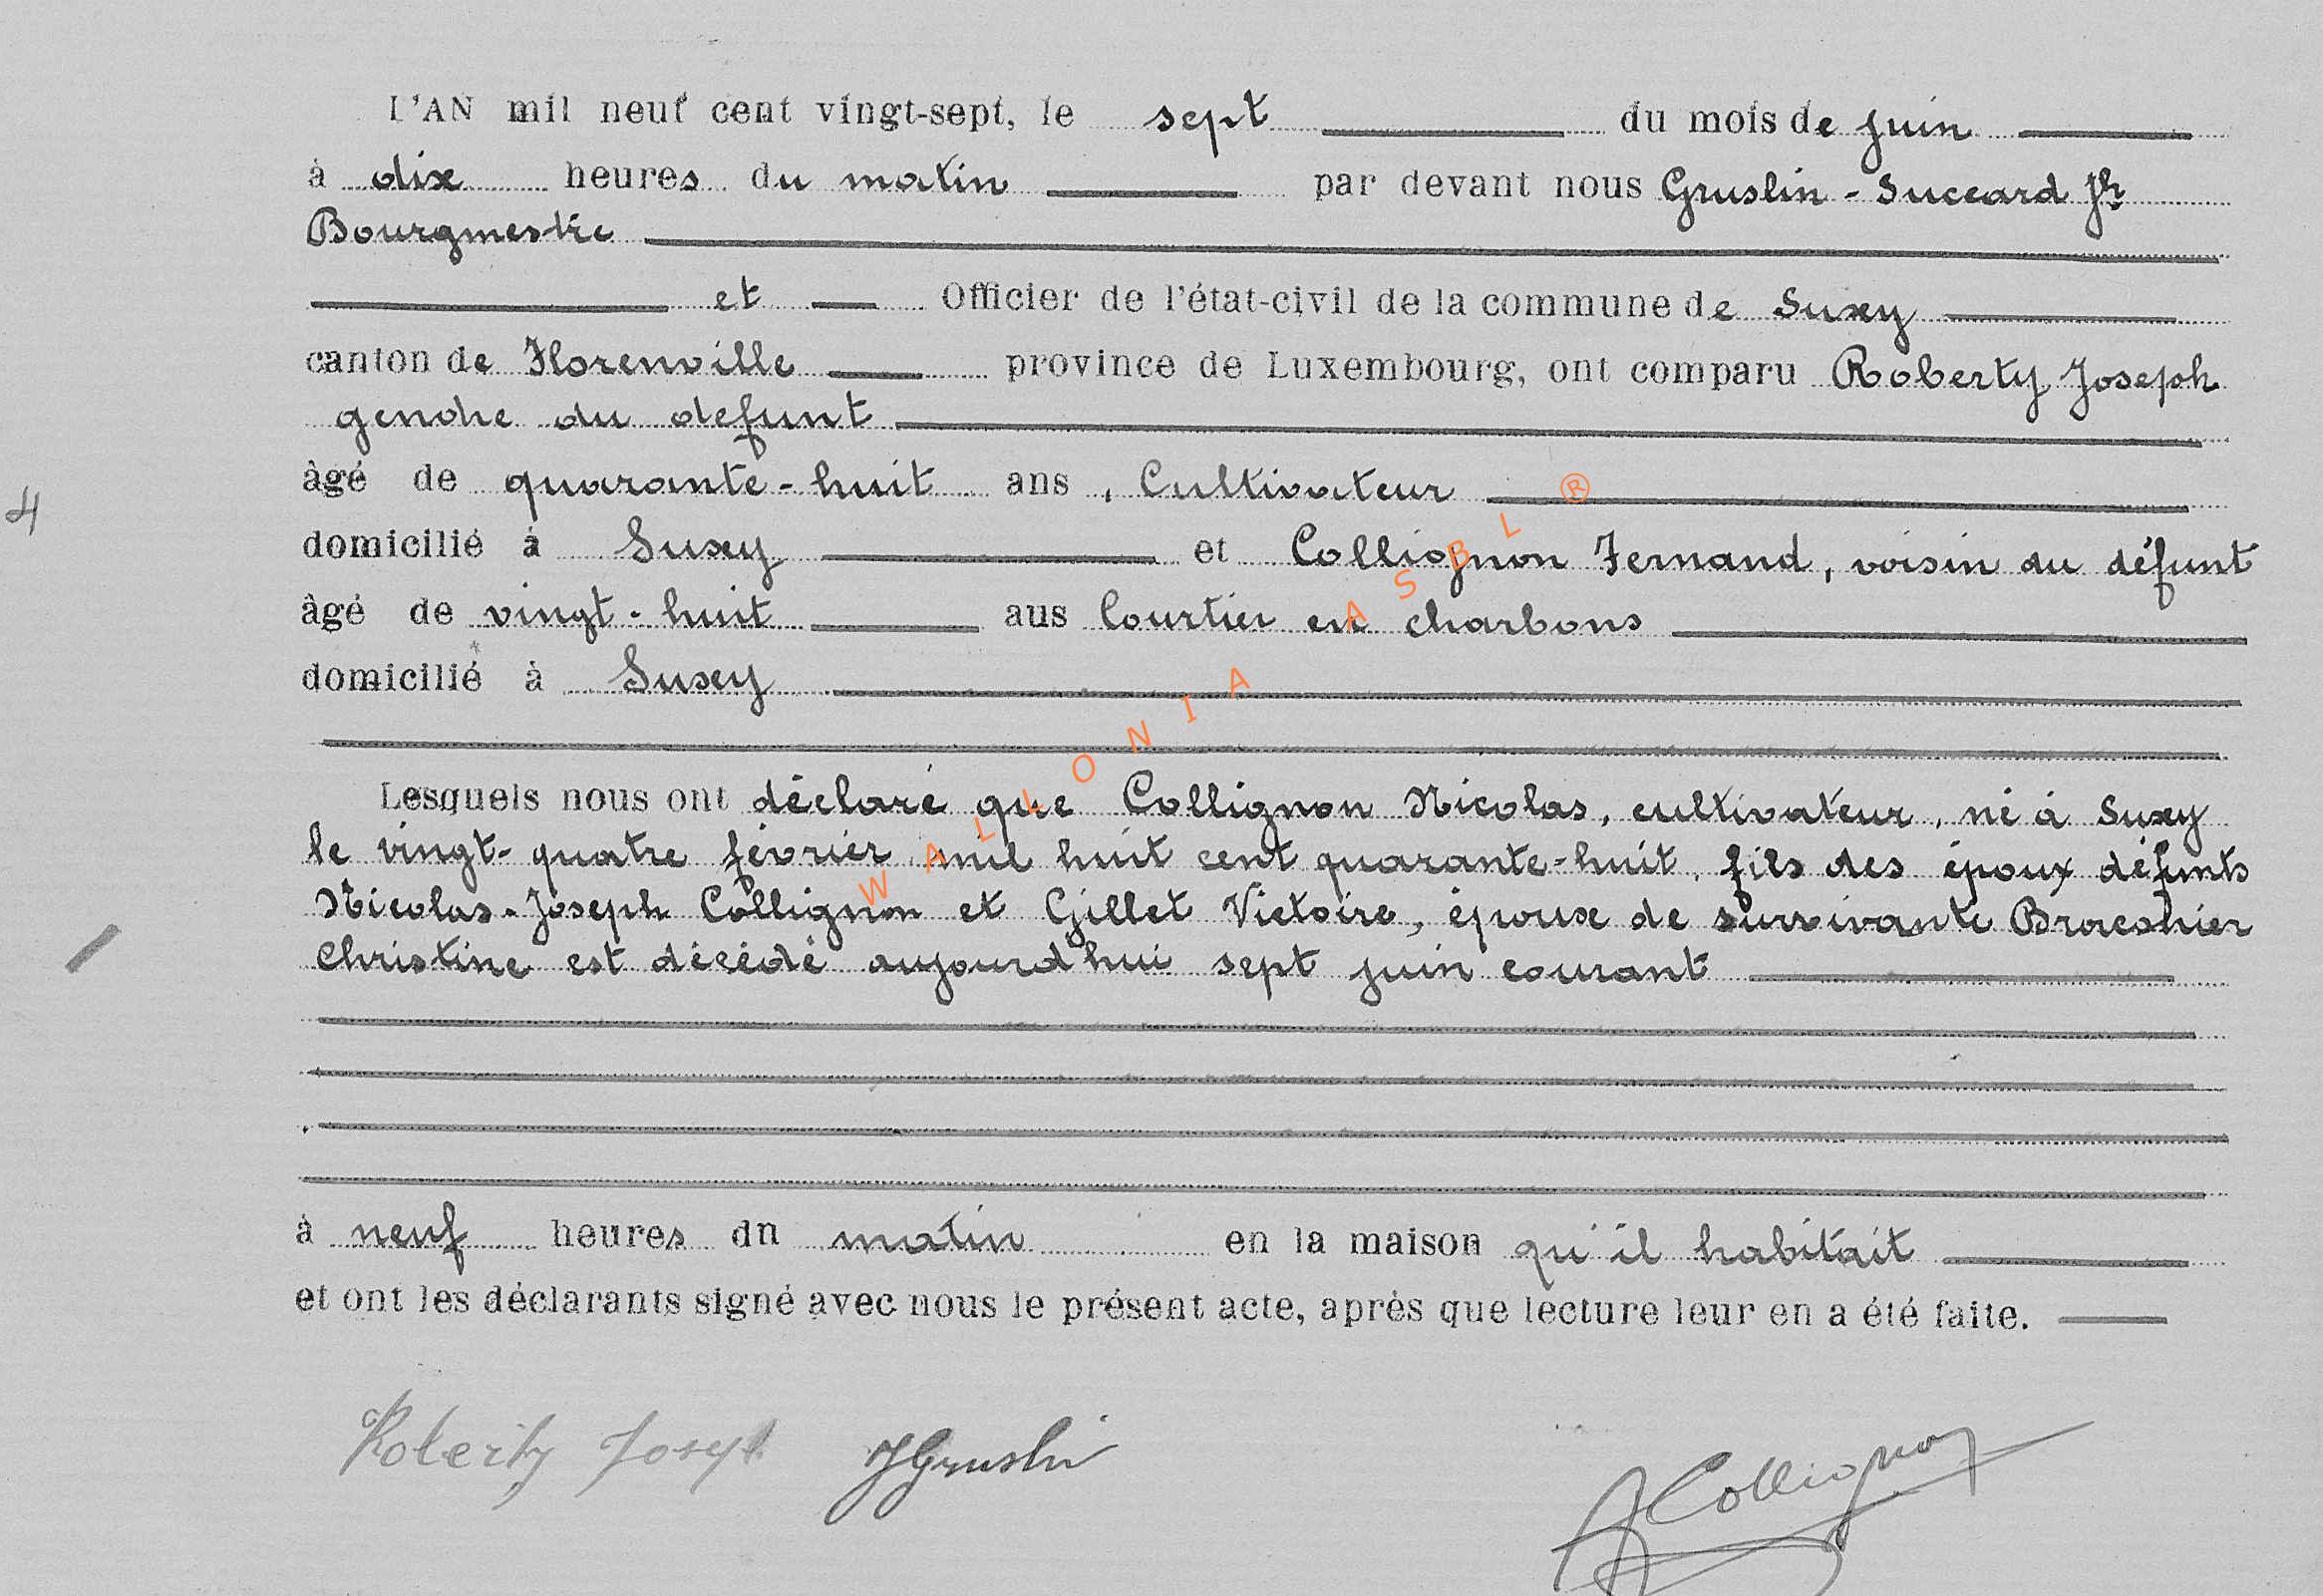 L'AN mil neuf cent vingt-sept, le sept du mois de juin
à dix heures du matin par devant nous Gruslin - Succard Jh
Bourgmestre
et Officier de l'état-civil de la commune de Suxy
canton de Florenville province de Luxembourg, ont comparu Roberty Joseph
gendre du defunt
âgé de quarante-huit ans, Cultivateur
domicilié à Suxy et Collignon Fernand, voisin du défunt
âgé de vingt-huit aus Courtier en charbons
domicilié à Suxy
Lesquels nous ont déclaré que Collignon Nicolas, cultivateur, né à Suxy
le vingt-quatre février mil huit cent quarante-huit, fils des époux défunts
Nicolas-Joseph Collignon et Gillet Victoire, époux de survivante
Christine est décédé aujourd'hui sept juin courant
à neuf heures du matin en la maison qu'il habitait
et ont les déclarants signé avec nous le présent acte, après que lecture leur en a été faite.
Roberty Joseph JGruslin Collignon
4
WALLONIA ASBL ®